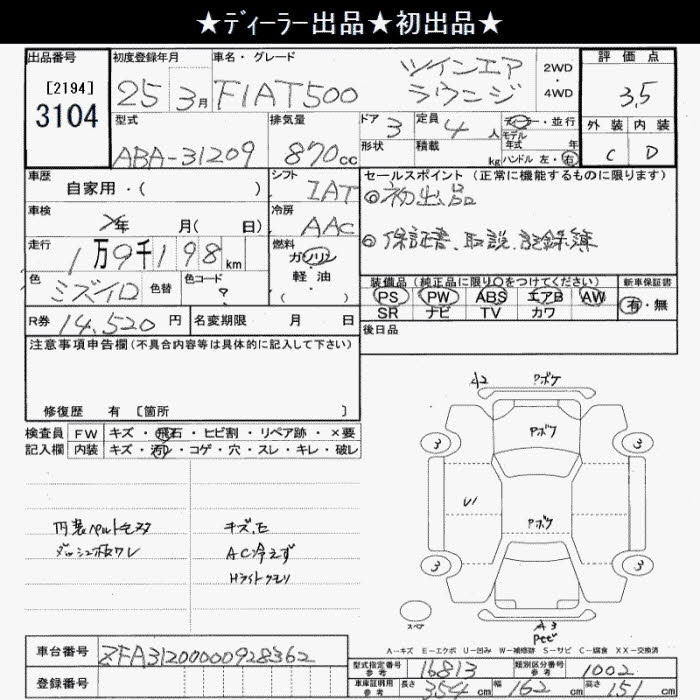 ★ディーラー出品★初出品★
出品番号 初度登録年月 車名・グレード 評価点
[2194] 25 3月 FIAT500 ツインエア ラウンジ 2WD・4WD 3.5
3104
型式 排気量 ドア 定員 ディーラー・並行 外装 内装
ABA-31209 870cc 3 4人 モデル年式 年 C D
形状 積載 kg ハンドル 左・右
車歴 シフト セールスポイント(正常に機能するものに限ります)
自家用・( ) IAT ◎初出品
車検 冷房
年 月( 日) AAC ◎保証書、取説、記録簿
走行 燃料
1万9千198km ガソリン
軽・油
・( )
色 色替 色コード 装備品(純正品に限り○をつけてください) 新車保証書
ミズイロ ? PS PW ABS エアB AW 有・無
SR ナビ TV カワ
R券 14,520円 名変期限 月 日 後日品
注意事項申告欄(不具合内容等は具体的に記入して下さい)
修復歴 有 [箇所 ]
検査員 FW キズ・飛石・ヒビ割・リペア跡・×要
記入欄 内装 キズ・汚れ・コゲ・穴・スレ・キレ・破レ
ダッシュ板ワレ
キズ,E
AC冷えず
Hライトクモリ
A2 Pボケ
Pボケ
3 3
U1
Pボケ
3 3
スペア A3
Pﾋﾋﾞ
A-キズ E-エクボ U-凹み W-補修跡 S-サビ C-腐食 XX-交換済
車台番号 ZFA31200000928362
登録番号
型式指定番号 参考 16813 類別区分番号 参考 1002
車庫証明用 参考 長さ 354cm 幅 162cm 高さ 151cm